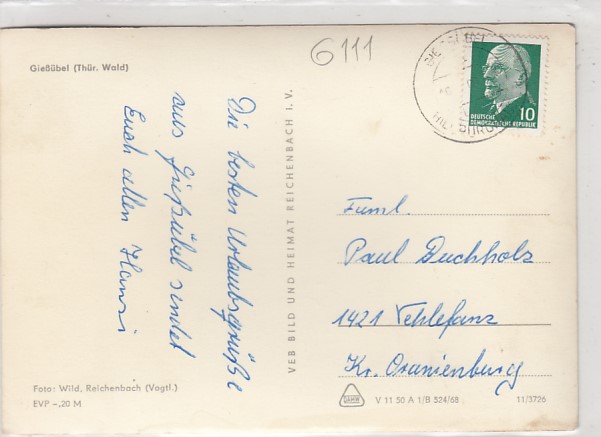 6111
Gießübel (Thür. Wald)
Die besten Urlaubsgrüße
aus Gießübel sendet
Euch allen Hanni
VEB BILD UND HEIMAT REICHENBACH I. V.
DEUTSCHE
DEMOKRATISCHE REPUBLIK
10
Faml.
Paul Duchholz
1421 Vehlefanz
Kr. Oranienburg
Foto: Wild, Reichenbach (Vogtl.)
EVP –,20 M
V 11 50 A 1/B 524/68
11/3726